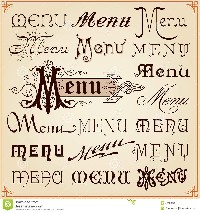 MENU Menu Menu
Menu Menu MENU
Menu
Menu Menu
Menu MENU MENU
MENU Menu MENU
MENU MENU MENU